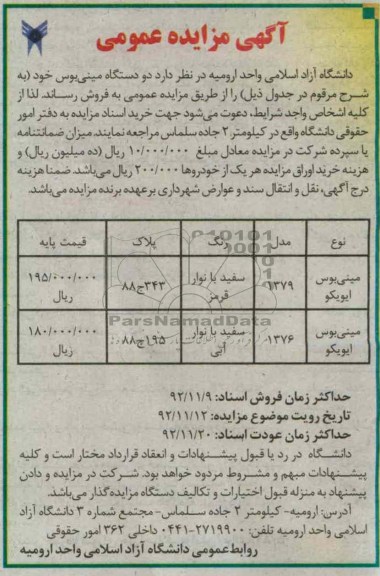 آگهی مزایده عمومی
دانشگاه آزاد اسلامی واحد ارومیه در نظر دارد دو دستگاه مینی‌بوس خود (به
شرح مرقوم در جدول ذیل) را از طریق مزایده عمومی به فروش رساند. لذا از
کلیه اشخاص واجد شرایط، دعوت می‌شود جهت خرید اسناد مزایده به دفتر امور
حقوقی دانشگاه واقع در کیلومتر ۲ جاده سلماس مراجعه نمایند. میزان ضمانتنامه
یا سپرده شرکت در مزایده معادل مبلغ ۱۰/۰۰۰/۰۰۰ ریال (ده میلیون ریال) و
هزینه خرید اوراق مزایده هر یک از خودروها ۲۰۰/۰۰۰ ریال می‌باشد. ضمنا هزینه
درج آگهی، نقل و انتقال سند و عوارض شهرداری بر عهده برنده مزایده می‌باشد.
نوع مدل رنگ پلاک قیمت پایه
مینی‌بوس ایویکو ۱۳۷۹ سفید با نوار قرمز ۳۴۳ج۸۸ ۱۹۵/۰۰۰/۰۰۰ ریال
مینی‌بوس ایویکو ۱۳۷۶ سفید با نوار آبی ۱۹۵ج۸۸ ۱۸۰/۰۰۰/۰۰۰ ریال
ParsNamadData
حداکثر زمان فروش اسناد: ۹۲/۱۱/۹
تاریخ رویت موضوع مزایده: ۹۲/۱۱/۱۲
حداکثر زمان عودت اسناد: ۹۲/۱۱/۲۰
دانشگاه در رد یا قبول پیشنهادات و انعقاد قرارداد مختار است و کلیه
پیشنهادات مبهم و مشروط مردود خواهد بود. شرکت در مزایده و دادن
پیشنهاد به منزله قبول اختیارات و تکالیف دستگاه مزایده‌گذار می‌باشد.
آدرس: ارومیه- کیلومتر ۲ جاده سلماس- مجتمع شماره ۳ دانشگاه آزاد
اسلامی واحد ارومیه تلفن: ۲۷۱۹۹۰۰-۰۴۴۱ داخلی ۳۶۲ امور حقوقی
روابط عمومی دانشگاه آزاد اسلامی واحد ارومیه